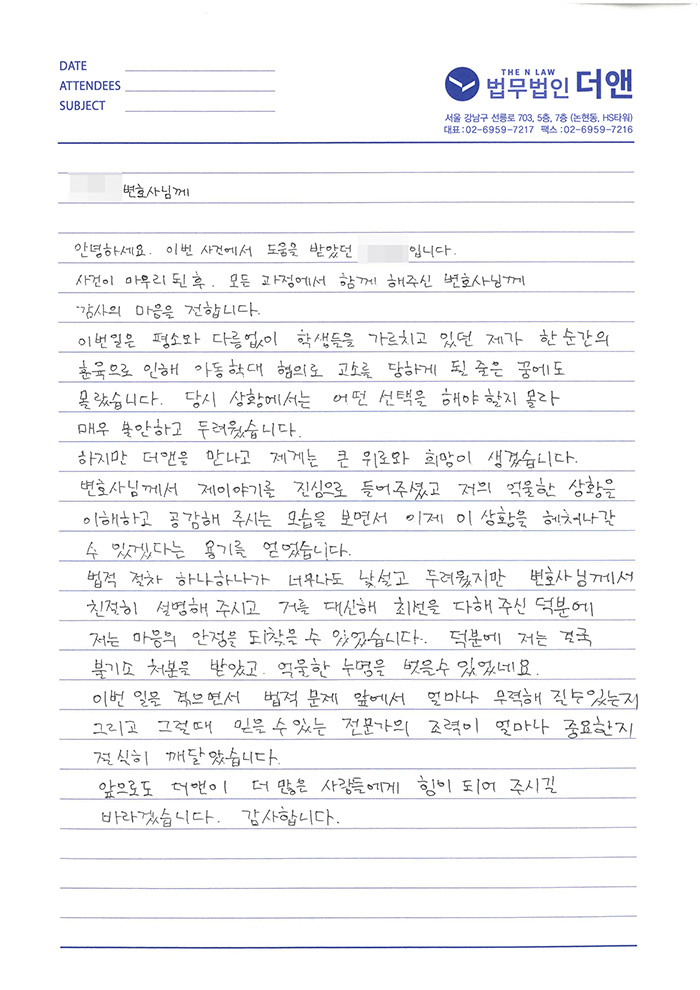 DATE
ATTENDEES
SUBJECT
THE N LAW
법무법인 더앤
서울 강남구 선릉로 703, 5층, 7층 (논현동, HS타워)
대표:02-6959-7217 팩스:02-6959-7216
변호사님께
안녕하세요. 이번 사건에서 도움을 받았던 입니다.
사건이 마무리 된 후. 모든 과정에서 함께 해주신 변호사님께
감사의 마음을 전합니다.
이번일은 평소와 다름없이 학생들을 가르치고 있던 제가 한 순간의
훈육으로 인해 아동학대 혐의로 고소를 당하게 될 줄은 꿈에도
몰랐습니다. 당시 상황에서는 어떤 선택을 해야 할지 몰라
매우 불안하고 두려웠습니다.
하지만 더앤을 만나고 제게는 큰 위로와 희망이 생겼습니다.
변호사님께서 제이야기를 진심으로 들어주셨고 저의 억울한 상황을
이해하고 공감해 주시는 모습을 보면서 이제 이 상황을 헤쳐나갈
수 있겠다는 용기를 얻었습니다.
법적 절차 하나하나가 너무나도 낯설고 두려웠지만 변호사님께서
친절히 설명해 주시고 저를 대신해 최선을 다해 주신 덕분에
저는 마음의 안정을 되찾을 수 있었습니다. 덕분에 저는 결국
불기소 처분을 받았고. 억울한 누명을 벗을수 있었네요.
이번 일을 겪으면서 법적 문제 앞에서 얼마나 무력해 질수있는지
그리고 그럴때 믿을 수 있는 전문가의 조력이 얼마나 중요한지
절실히 깨달았습니다.
앞으로도 더앤이 더 많은 사람들에게 힘이 되어 주시길
바라겠습니다. 감사합니다.